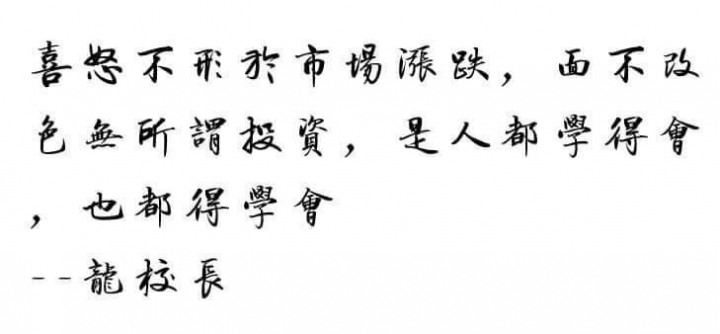 喜怒不形於市場漲跌，面不改
色無所謂投資，是人都學得會
，也都得學會
--龍校長